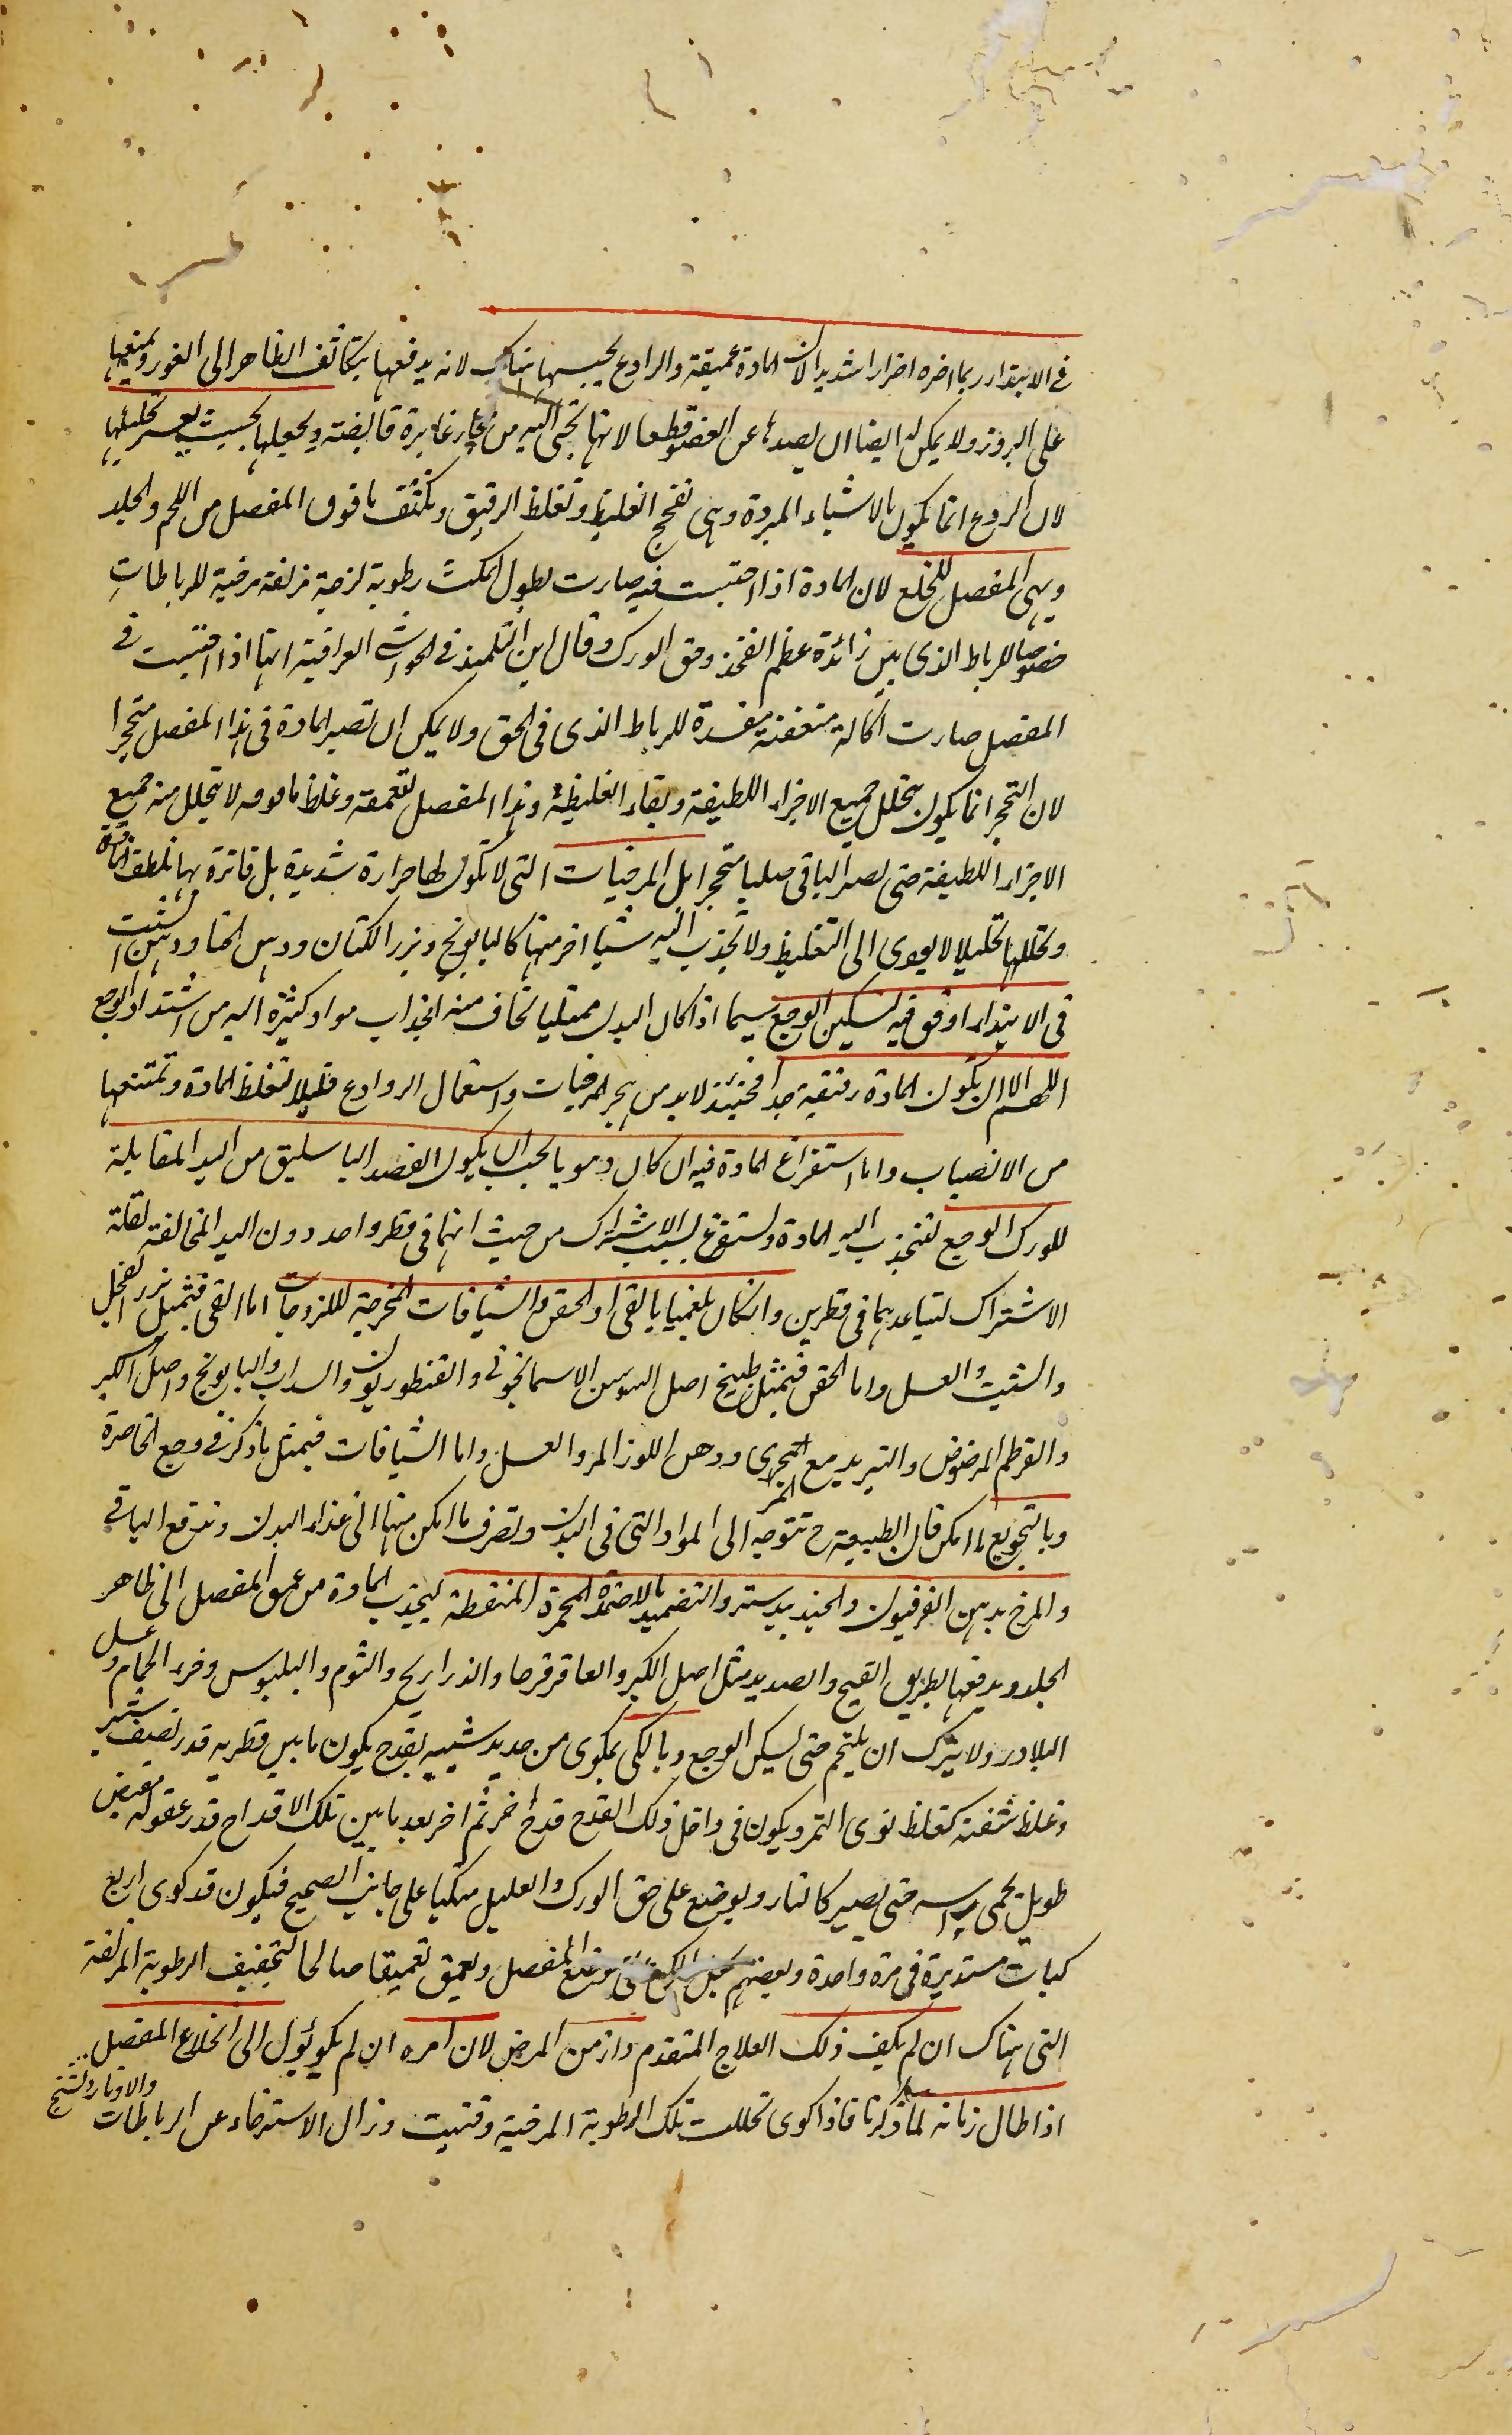 في الابتداء ربما اضره اضرارا شديدا لان المادة عميقة والرادع يحبسها هناك لانه يدفعها بتكاثف الظاهر الى الغور ويمنعها
على البروز ولا يمكن ايضا ان يصدها عن العضو قطعا لانها تجئ اليه من غائرة ويجعلها بحيث يعسر تحليلها
لان الردع انما يكون بالاشياء المبردة وهى تفجج الغليظ وتغلظ الرقيق وتكثف ما فوق المفصل من اللحم والجلد
ويهى المفصل للخلع لان المادة اذا احتبست فيه صارت لطول المكث رطوبة لزجة مزلقة مرخية للرباطات
خصوصا للرباط الذى بين زائدة عظم الفخذ وحق الورك وقال ابن التلميذ فى الحواشى العراقية انها اذا احتبست فى
المفصل صارت اكالة متعفنة مفسدة للرباط الذى فى الحق ولا يمكن ان تصير المادة فى هذا المفصل متحجرا
لان التحجر انما يكون بتحلل جميع الاجزاء اللطيفة وبقاء الغليظة وهذا المفصل لتعمقه وغلظ ما فوقه لا يتحلل منه جميع
الاجزاء اللطيفة حتى يصير الباقى صلبا متحجرا بل المرخيات التى لا تكون لها حرارة شديدة بل فاترة بها تلطف المادة
وتحللها تحليلا لا يودى الى التغليظ ولا تجذب اليه شيا اخر منها كالبابونج وبزر الكتان ودهن الحنا ودهن الشبت
فى الابتداء اوفق فيه لتسكين الوجع سيما اذا كان البدن ممتليا تخاف منه انجذاب مواد كثيرة اليه من اشتداد الوجع
اللهم الا ان تكون المادة رقيقة جدا فحينئذ لابد من هجر المرخيات واستعمال الروادع قليلا لتغلظ المادة وتمنعها
من الانصباب واما استفراغ المادة فيه ان كان دمويا يجب ان يكون الفصد الباسليق من اليد المقابلة
للورك الوجع لتنجذب اليه المادة وتستفرغ بسبب الاشتراك من حيث انهما فى قطر واحد دون اليد المخالفة لقلة
الاشتراك لتباعدهما فى قطرين وان كان بلغميا بالقى او الحقن والشيافات المخرجة لللزوجات اما القى فبمثل بزر الفجل
والشبت والعسل واما الحقن فبمثل طبيخ اصل السوسن الاسمانجونى والقنطوريون والسداب والبابونج واصل الكبر
والقرطم المرضوض والتربد مع المرى ودهن اللوز المر والعسل واما الشيافات فبمثل ما ذكر فى وجع الخاصرة
وبالتجويع ما امكن فان الطبيعة ح تتوجه الى المواد التى فى البدن وتصرف ما امكن منها الى غذاء البدن وتدفع الباقى
والمرخ بدهن الفرفيون والجندبيدستر والتضميد بالاضمدة المحمرة المنفطة ليجذب المادة من عمق المفصل الى ظاهر
الجلد ويدفعها بطريق القيح والصديد مثل اصل الكبر والعاقرقرحا والذراريح والثوم والبلبوس وخرء الحمام وعسل
البلادر ولا يترك ان يلتحم حتى يسكن الوجع وبالكى بمكوى من حديد شبيه بقدح يكون ما بين قطريه قدر نصف شبر
وغلظ شفته كغلظ نوى التمر ويكون فى داخل ذلك القدح قدح اخر ثم اخر بعد ما بين تلك الاقداح قدر عقد وله مقبض
طويل يحمى راسه حتى يصير كالنار ويوضع على حق الورك والعليل متكيا على جانب الصحيح فيكون قد كوى اربع
كيات مستديرة فى مرة واحدة وبعضهم المفصل ويعمق تعميقا صالحا لتجفيف الرطوبة المزلقة
التى هناك ان لم يكف ذلك العلاج المتقدم وازمن المرض لان امره ان لم يكو يؤول الى انخلاع المفصل
اذا طال زمانه لما ذكرنا فاذا كوى تحللت تلك الرطوبة المرخية وفنيت وزال الاسترخاء عن الرباطات
والاوتار وتشنج